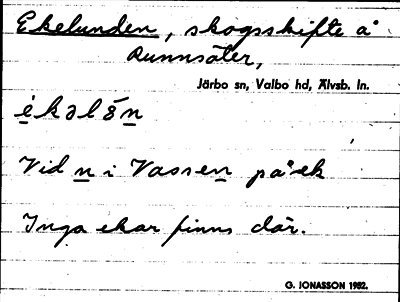 Ekelunden, skogsskifte å
Runnsäter,
Järbo sn, Valbo hd, Älvsb. ln.
Vid n i Vassen på ek
Inga ekar finns där.
G. JONASSON 1952.